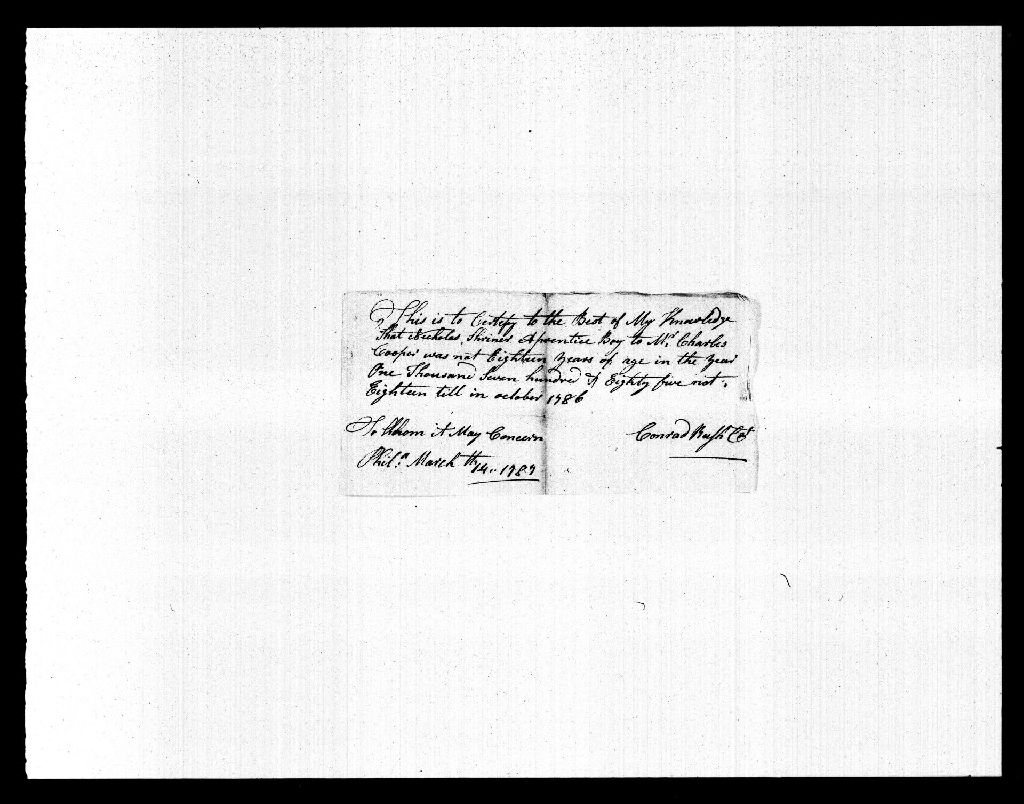 This is to Certify to the Best of My Knowledge
That Nicholas Shriner Aprentice Boy to Mr. Charles
Cooper was not Eighteen years of age in the year
One Thousand Seven hundred & Eighty five not
Eighteen till in october 1786
To Whom it May Concern
Conrad
Phil.a March th 14.. 1787